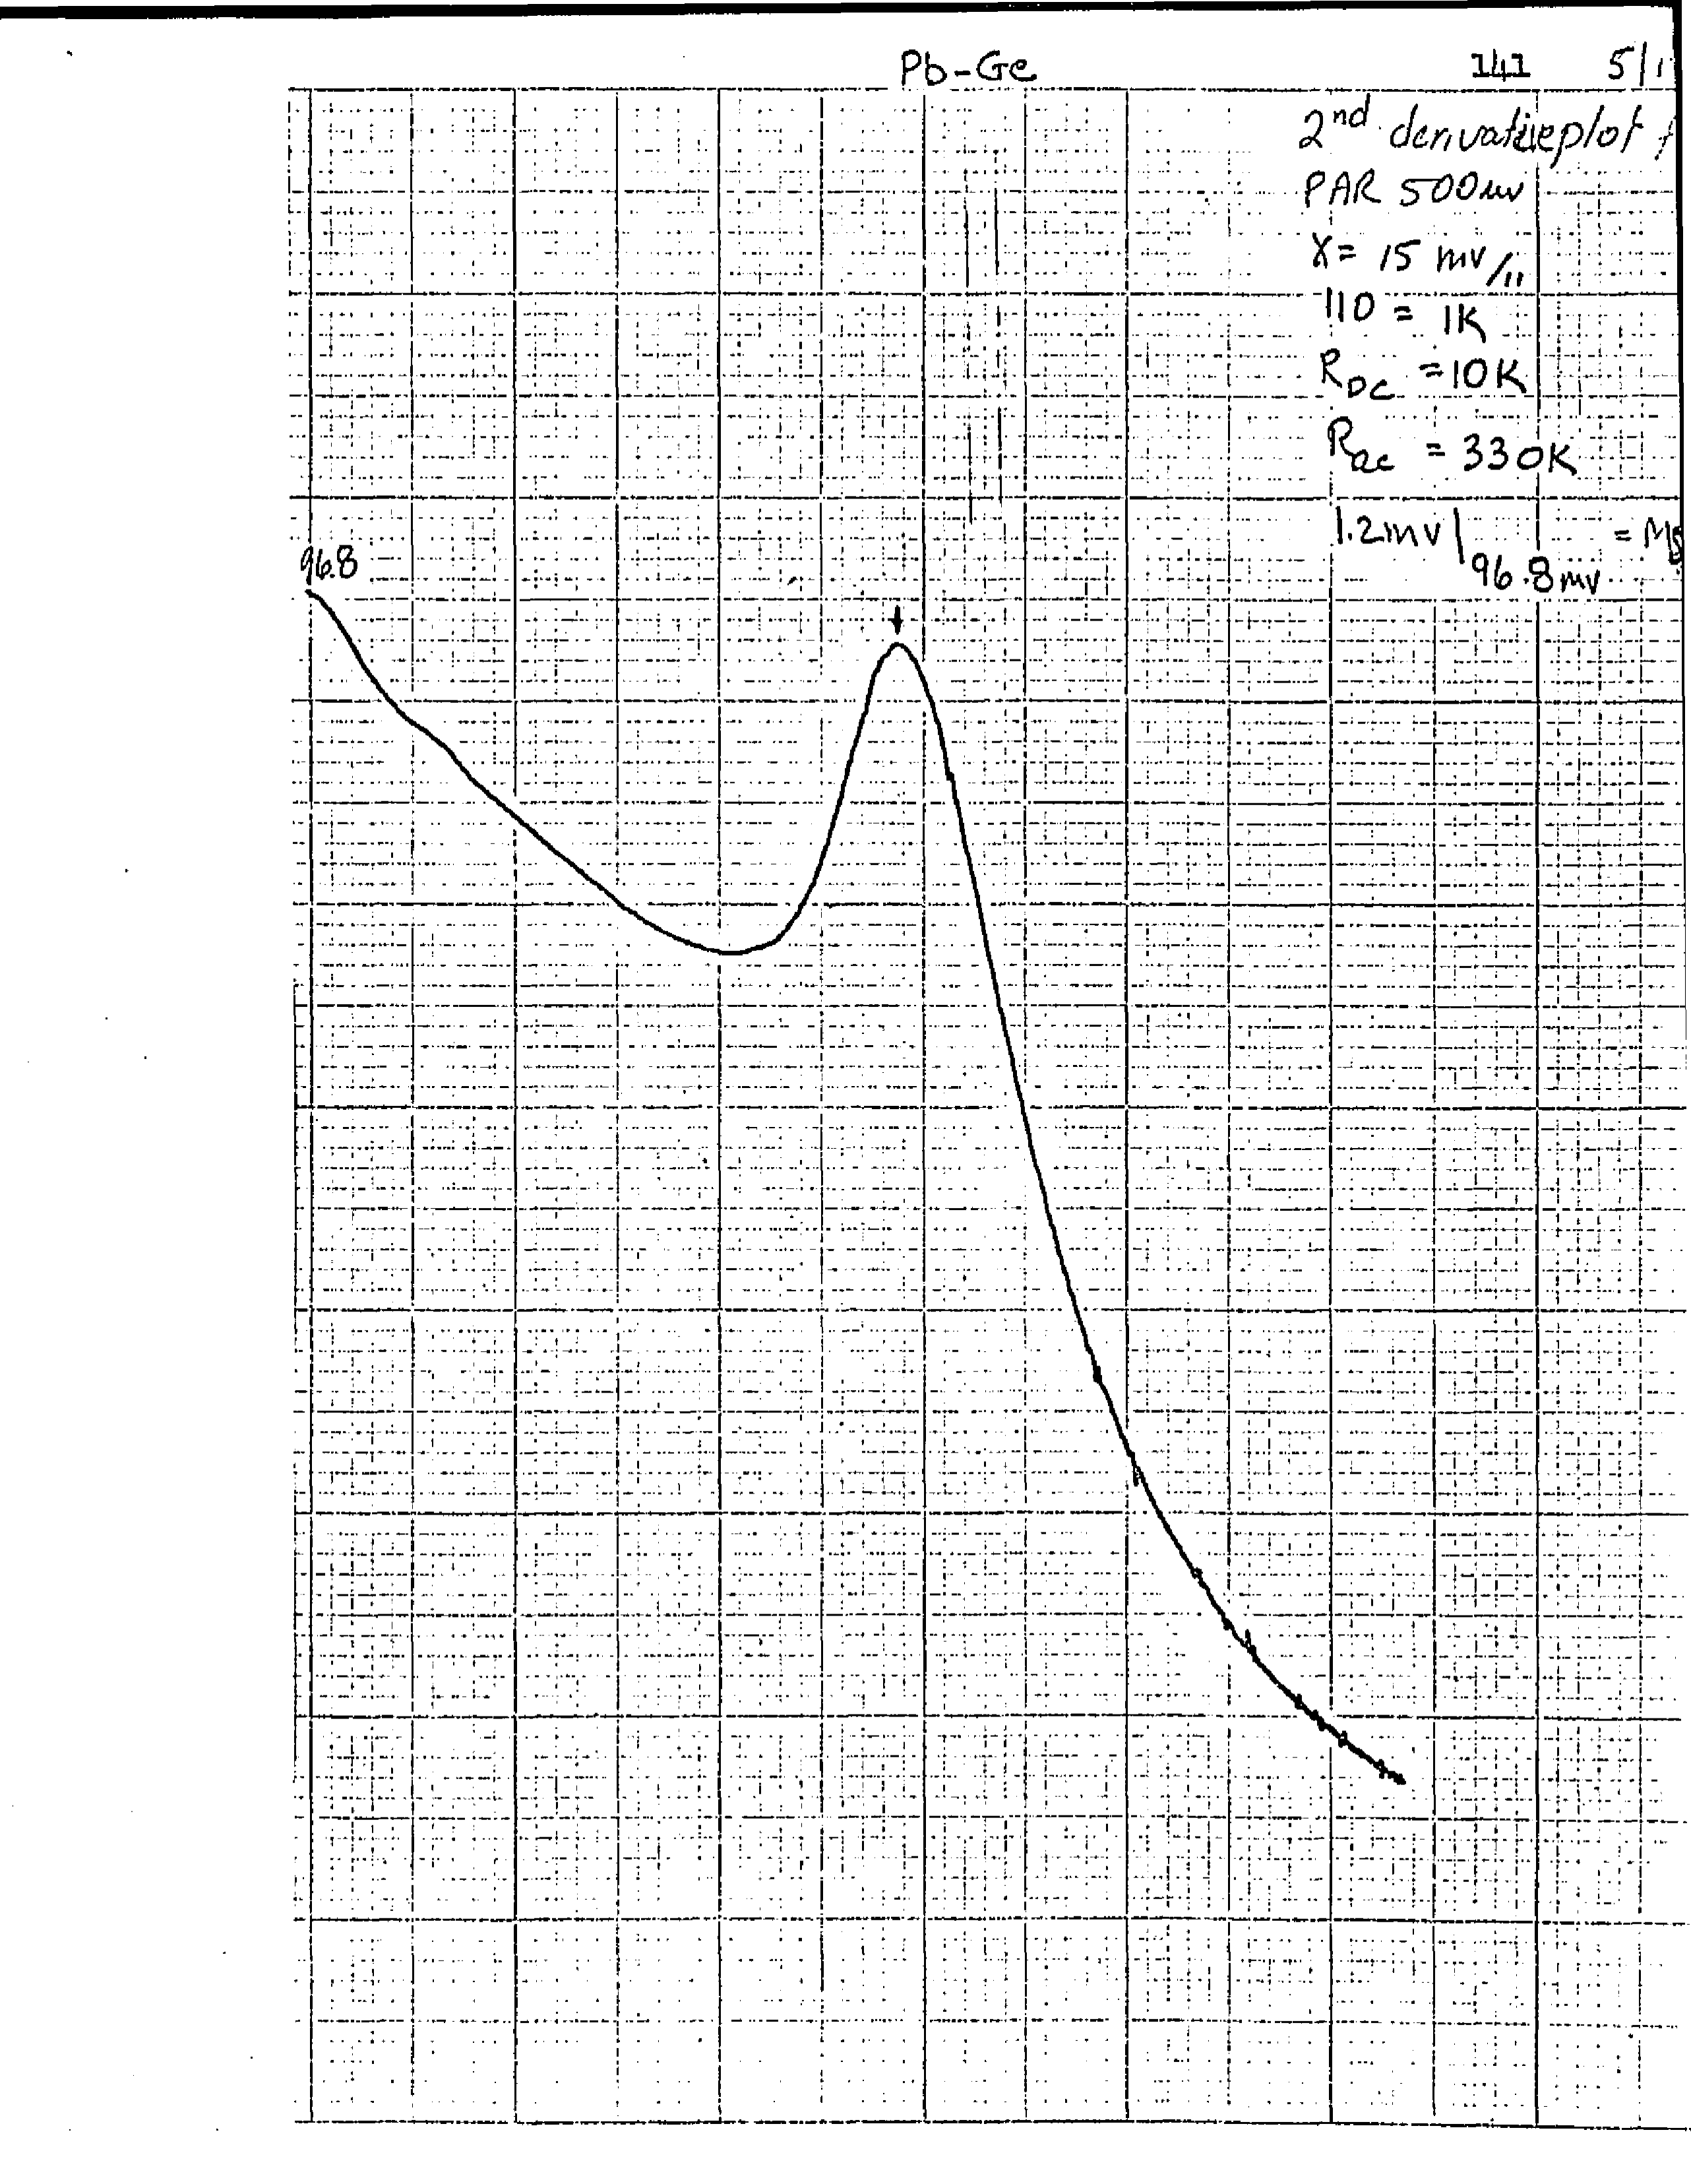 Pb-Ge 141 5/1
2nd derivative plot
PAR 500uv
X= 15 mv/"
110 = 1K
RDC = 10K
Rac = 330K
1.2mv|96.8mv = M
96.8